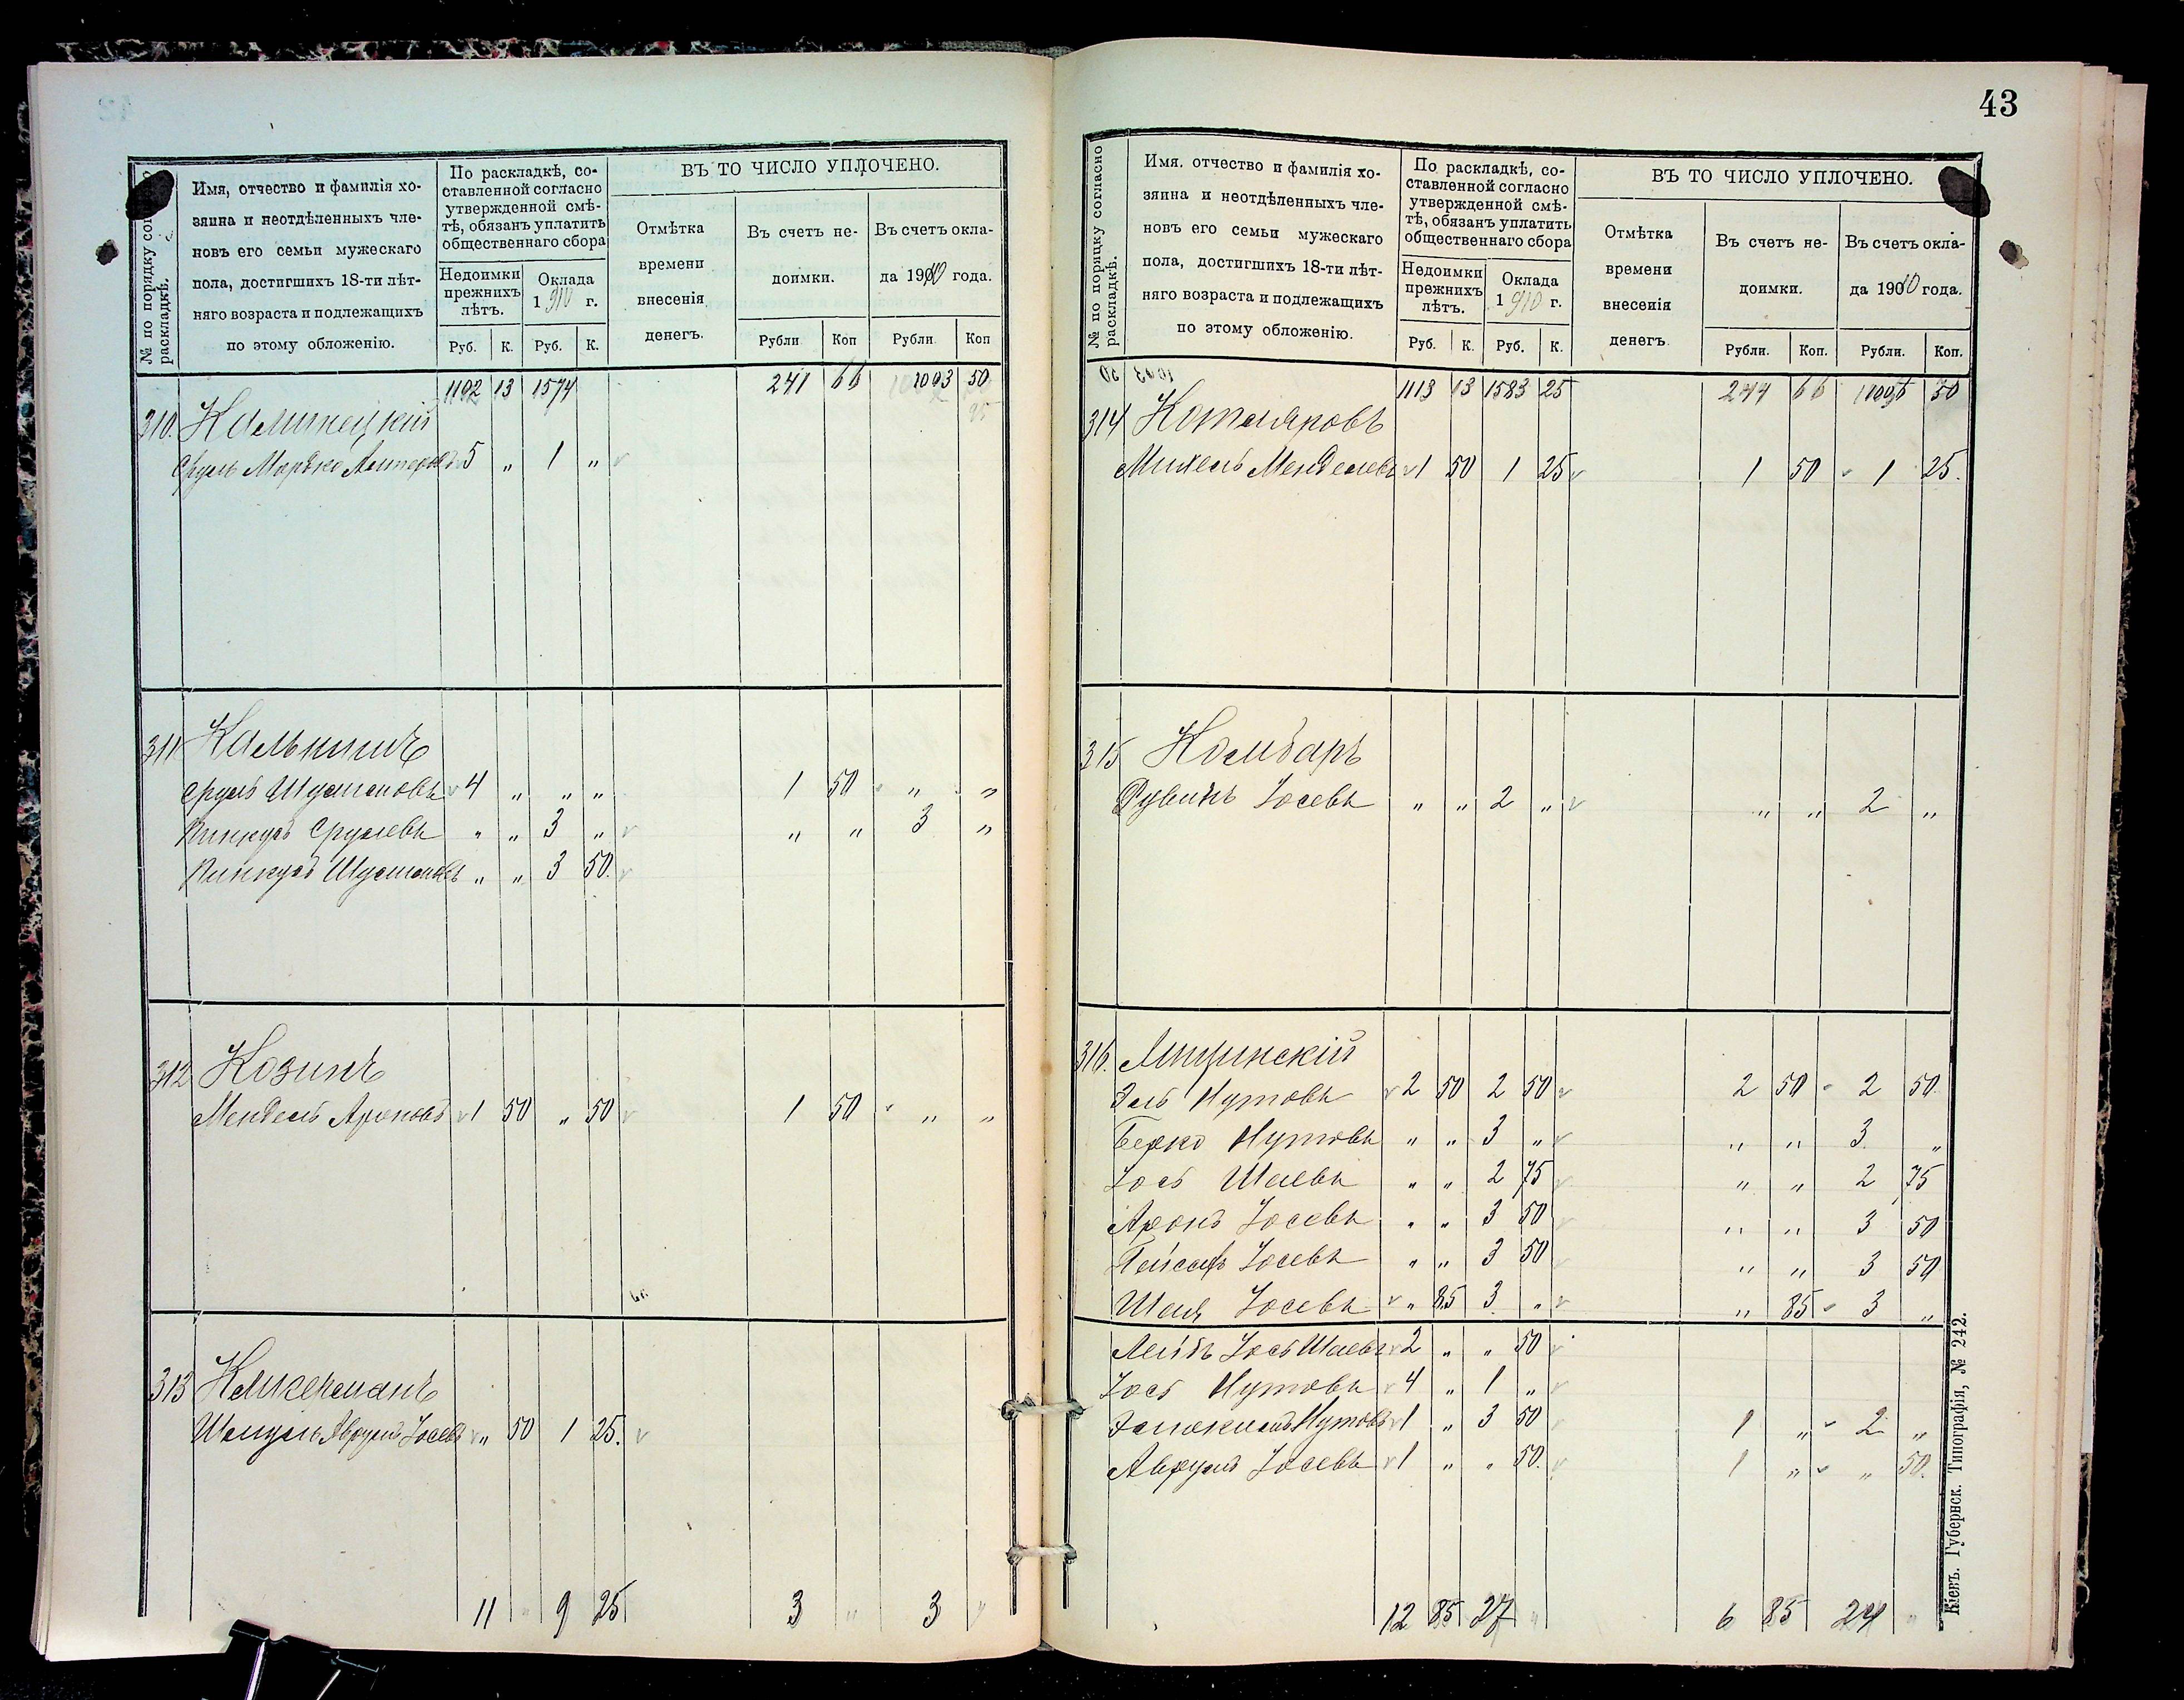 43
№ по порядку сог
раскладкѣ.
Имя, отчество и фамилія хо-
зяина и неотдѣленныхъ чле-
новъ его семьи мужескаго
пола, достигшихъ 18-ти лѣт-
няго возраста и подлежащихъ
по этому обложенію.
По раскладкѣ, со-
ставленной согласно
утвержденной смѣ-
тѣ, обязанъ уплатить
общественнаго сбора
Недоимки
прежнихъ
лѣтъ.
Оклада
1910 г.
ВЪ ТО ЧИСЛО УПЛОЧЕНО.
Отмѣтка
времени
внесенія
денегъ.
Въ счетъ не-
доимки.
Въ счетъ окла-
да 1910 года.
Руб. К. Руб. К. Рубли Коп Рубли Коп
1102 13 1574 241 66 1003 50
310. Калинецкій
Сруль Мордко Лейзеровъ 5 „ 1 „
311 Калькинъ
Сруль Шулимовъ 4 „ „ „ 1 50 „ „
Пинкусъ Срулевъ „ „ 3 „ „ „ 3 „
Пинкусъ Шулимовъ „ „ 3 50.
312 Козинъ
Мендель Ароновъ 1 50 „ 50 1 50 „ „
313 Келкерманъ
Шмуль Аврумъ Іосевъ „ 50 1 25.
11 „ 9 25 3 „ 3 „
№ по порядку согласно
раскладкѣ.
Имя. отчество и фамилія хо-
зяина и неотдѣленныхъ чле-
новъ его семьи мужескаго
пола, достигшихъ 18-ти лѣт-
няго возраста и подлежащихъ
по этому обложенію.
По раскладкѣ, со-
ставленной согласно
утвержденной смѣ-
тѣ, обязанъ уплатить
общественнаго сбора
Недоимки
прежнихъ
лѣтъ.
Оклада
1910 г.
ВЪ ТО ЧИСЛО УПЛОЧЕНО.
Отмѣтка
времени
внесенія
денегъ.
Въ счетъ не-
доимки.
Въ счетъ окла-
да 1910 года.
Руб. К. Руб. К. Рубли. Коп. Рубли. Коп.
1113 13 1583 25 244 66 1006 50
314 Котляровъ
Михель Менделевъ 1 50 1 25 1 50 1 25.
315 Колибаръ
Рувинъ Іосевъ „ „ 2 „ „ „ 2 „
316. Лищинскій
Эль Нутовъ 2 50 2 50 2 50 2 50.
Берко Нутовъ „ „ 3 „ „ „ 3 „
Іось Шаевъ „ „ 2 75 „ „ 2 75
Аронъ Іосевъ „ „ 3 50 „ „ 3 50
Пейсахъ Іосевъ „ „ 3 50 „ „ 3 50
Шая Іосевъ „ 85 3 „ „ 85 3 „
Лейбъ Іось Шаевъ 2 „ „ 50
Іось Нутовъ 4 „ 1 „
Нутовъ 1 „ 3 50 1 „ 2 „
Аврумъ Іосевъ 1 „ „ 50. 1 „ „ 50.
12 85 27 „ 6 85 24 „
Кіевъ. Губернск. Типографія, № 242.